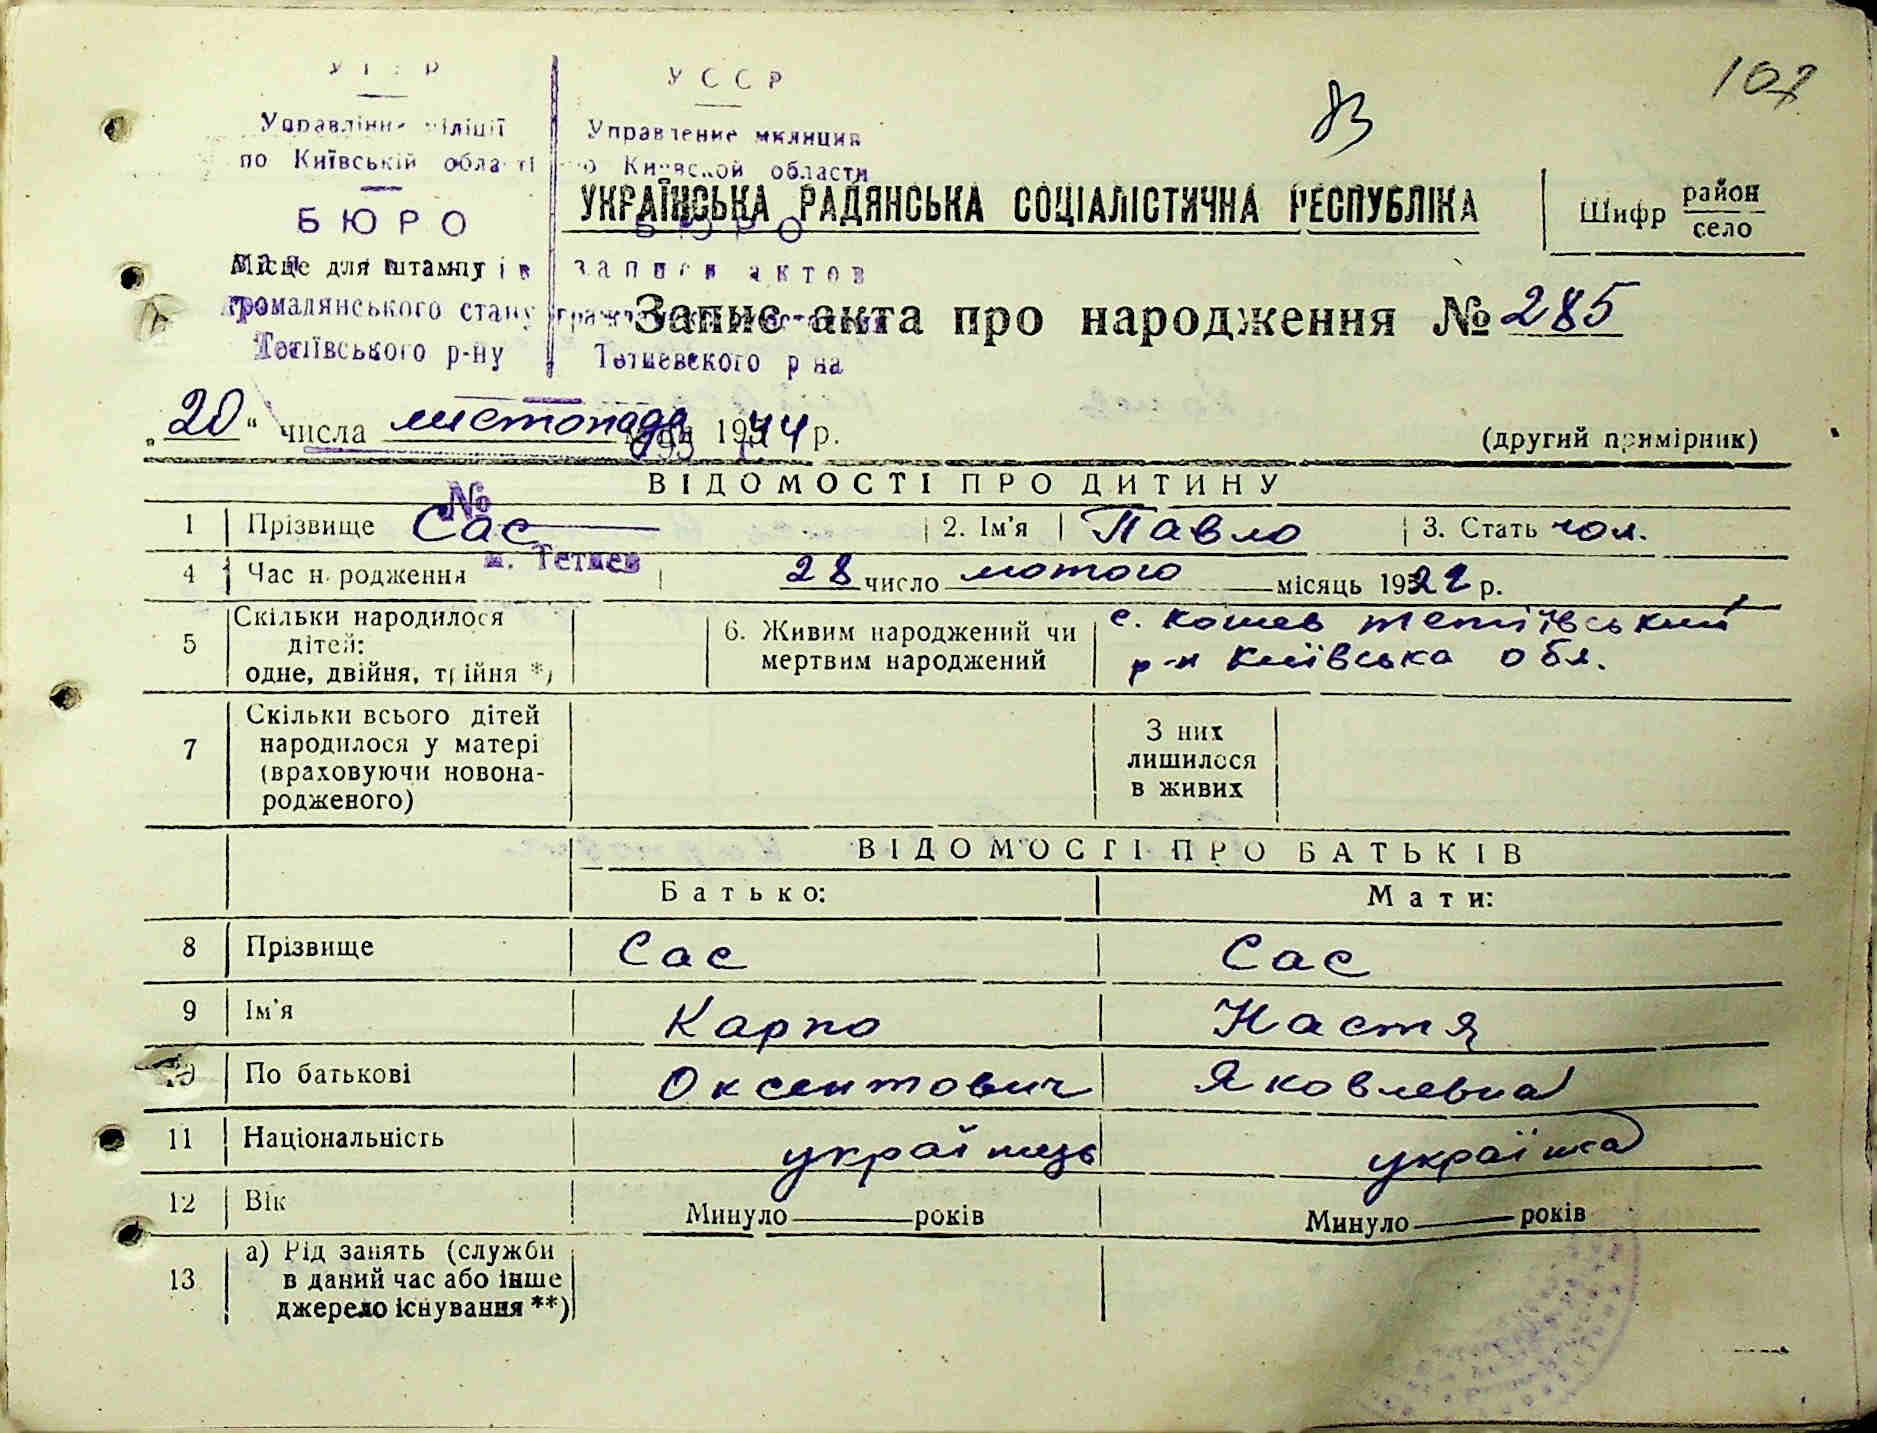 107
УССР
Управління міліції
Управление милиции
по Київській області
по Киевской области
БЮРО
БЮРО
УКРАЇНСЬКА РАДЯНСЬКА СОЦІАЛІСТИЧНА РЕСПУБЛІКА
Шифр район
село
Місце для штампу
записи актов
громадянського стану
Запис акта про народження № 285
Тетіївського р-ну
Тетиевского р на
„20“ числа листопада 1944 р.
(другий примірник)
ВІДОМОСТІ ПРО ДИТИНУ
№
1 Прізвище Сас 2. Ім'я Павло 3. Стать чол.
м. Тетиев
4 Час народження 28 число лютого місяць 1922 р.
5 Скільки народилося дітей: одне, двійня, трійня *)
6. Живим народжений чи мертвим народжений
с. Кошев тетіївський
р-н Київська обл.
7 Скільки всього дітей народилося у матері (враховуючи новонародженого)
З них лишилося в живих
ВІДОМОСТІ ПРО БАТЬКІВ
Батько: Мати:
8 Прізвище Сас Сас
9 Ім'я Карпо Настя
10 По батькові Оксентович Яковлевна
11 Національність українець українка
12 Вік Минуло років Минуло років
13 а) Рід занять (служби в даний час або інше джерело існування **)